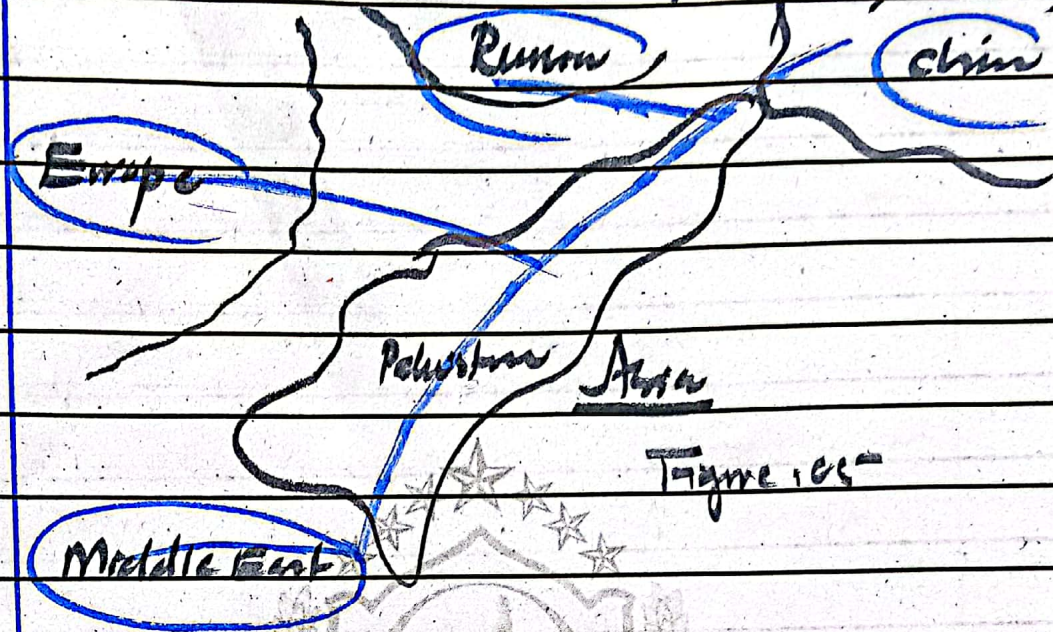 Russia China
Europe
Pakistan Asia
Figure : 05
Middle East